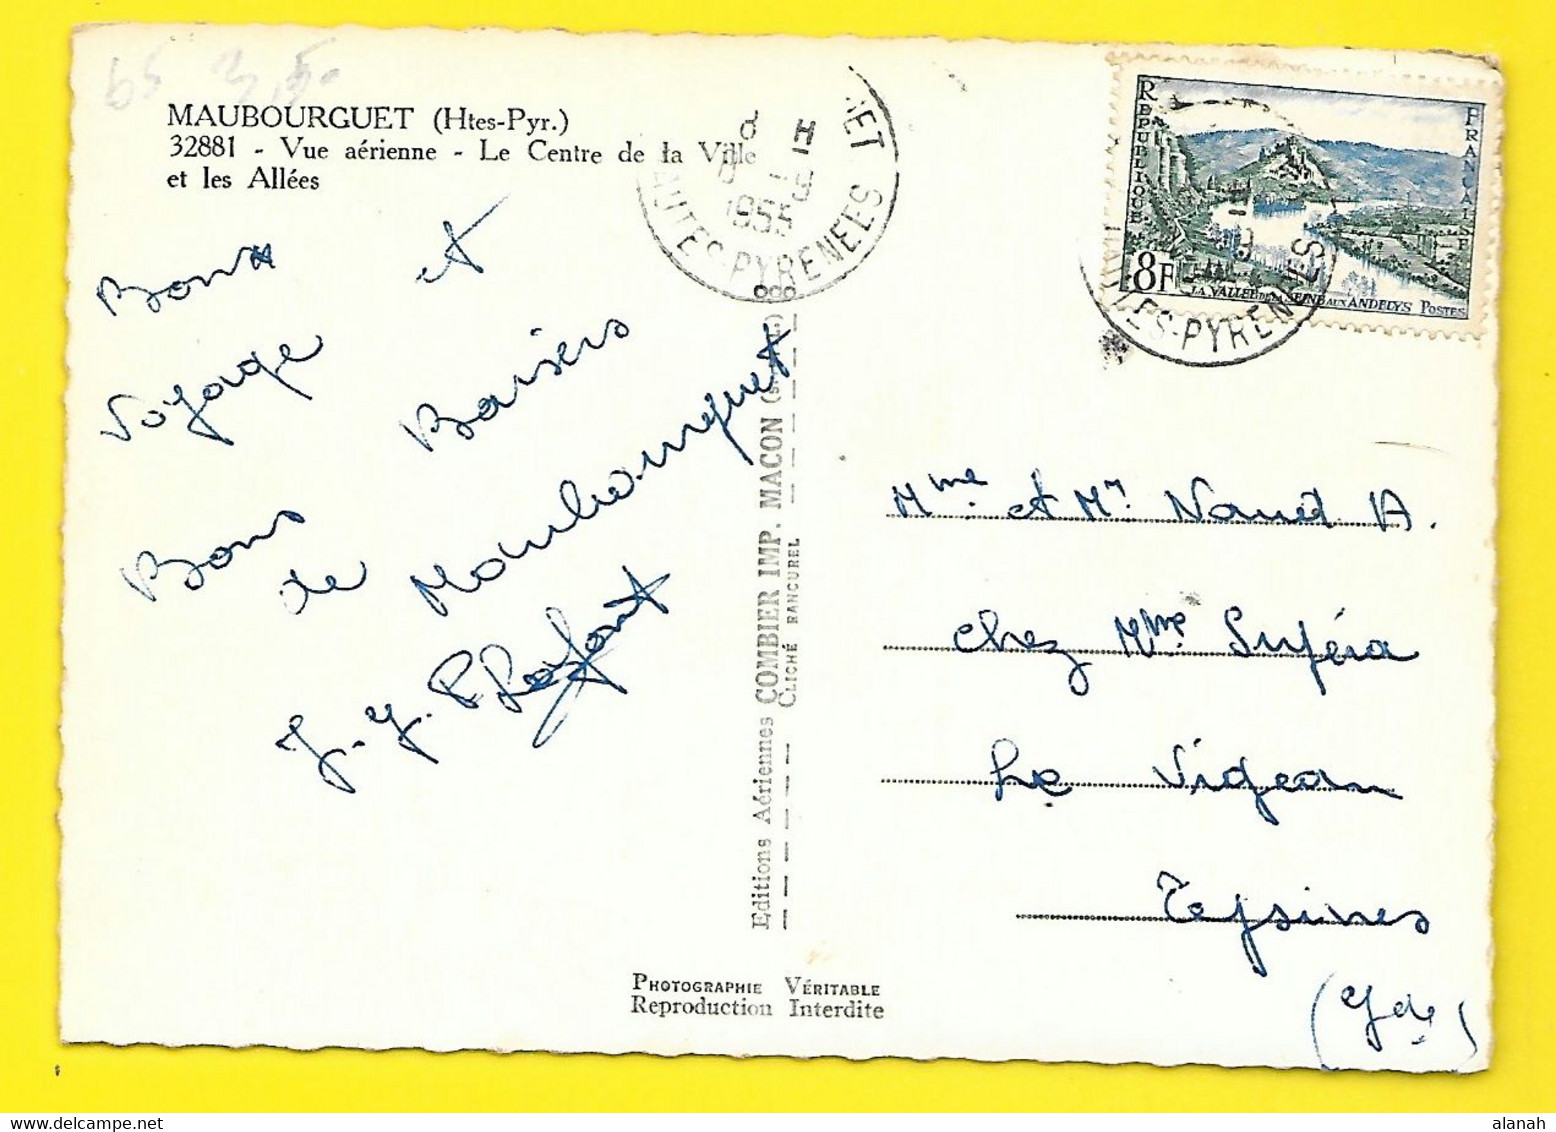 MAUBOURGUET (Htes-Pyr.)
32881 - Vue aérienne - Le Centre de la Ville
et les Allées
Bon et
Voyage Baisers
Bons
de Maubourguet
J. Y. P Lafont
Editions Aériennes COMBIER IMP. MACON
CLICHÉ RANCUREL
PHOTOGRAPHIE VÉRITABLE
Reproduction Interdite
8 H
1955
HAUTES-PYRENEES
RÉPUBLIQUE FRANÇAISE
8F
LA VALLÉE DE LA SEINE AUX ANDELYS POSTES
HAUTES-PYRENEES
Mme et Mr Naud A.
chez Mme Suféra
Le Vigean
Eysines
(Gde)
alanah